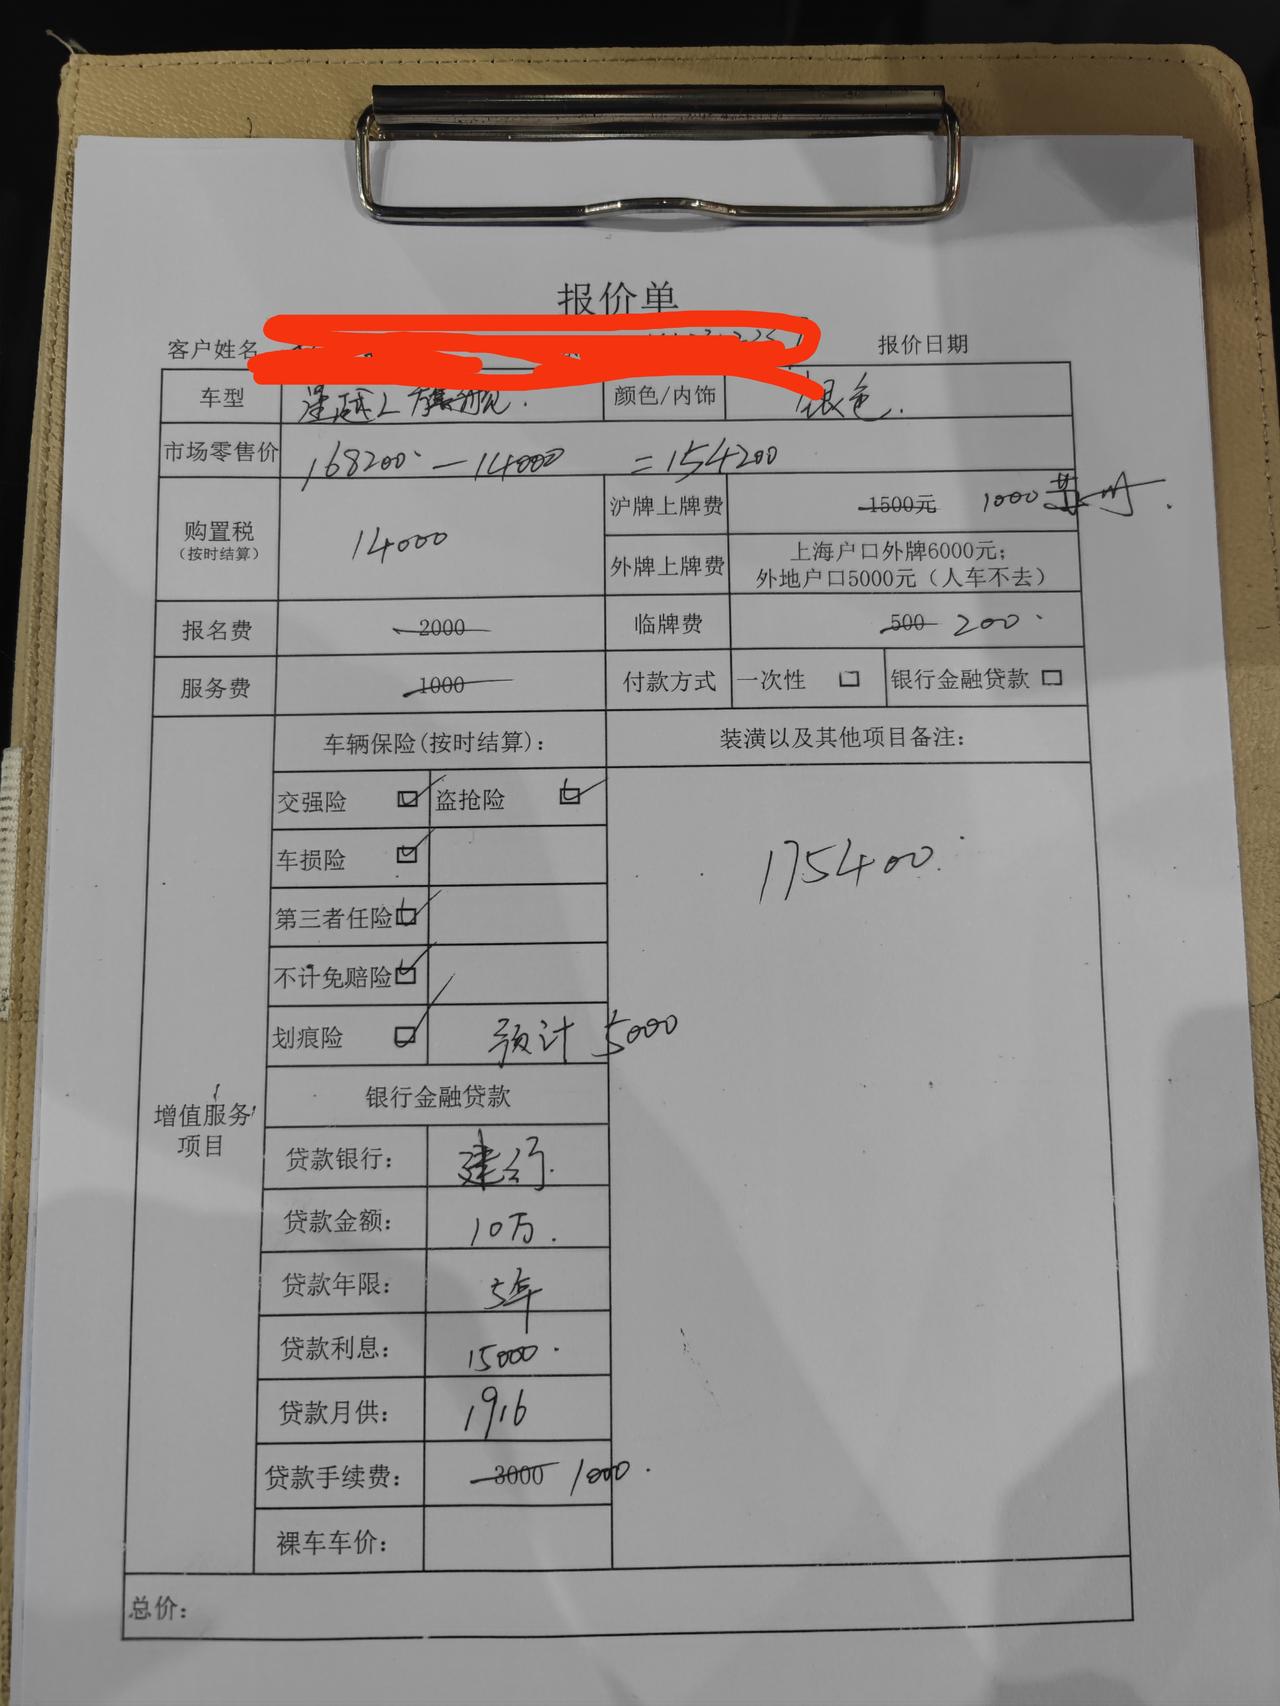 报价单
客户姓名 报价日期
车型 星越L 旗舰版. 颜色/内饰 银色.
市场零售价 168200 - 14000 = 154200
购置税 (按时结算) 14000
沪牌上牌费 1500元 1000
外牌上牌费 上海户口外牌6000元;
外地户口5000元（人车不去）
报名费 2000 临牌费 500 200
服务费 1000 付款方式 一次性 □ 银行金融贷款 □
增值服务项目
车辆保险(按时结算): 装潢以及其他项目备注:
交强险 ☑ 盗抢险 ☑
车损险 ☑
175400
第三者任险 ☑
不计免赔险 ☑
划痕险 ☑ 预计 5000
银行金融贷款
贷款银行: 建行.
贷款金额: 10万.
贷款年限: 5年
贷款利息: 15000.
贷款月供: 1916
贷款手续费: 3000 1000.
裸车车价:
总价: